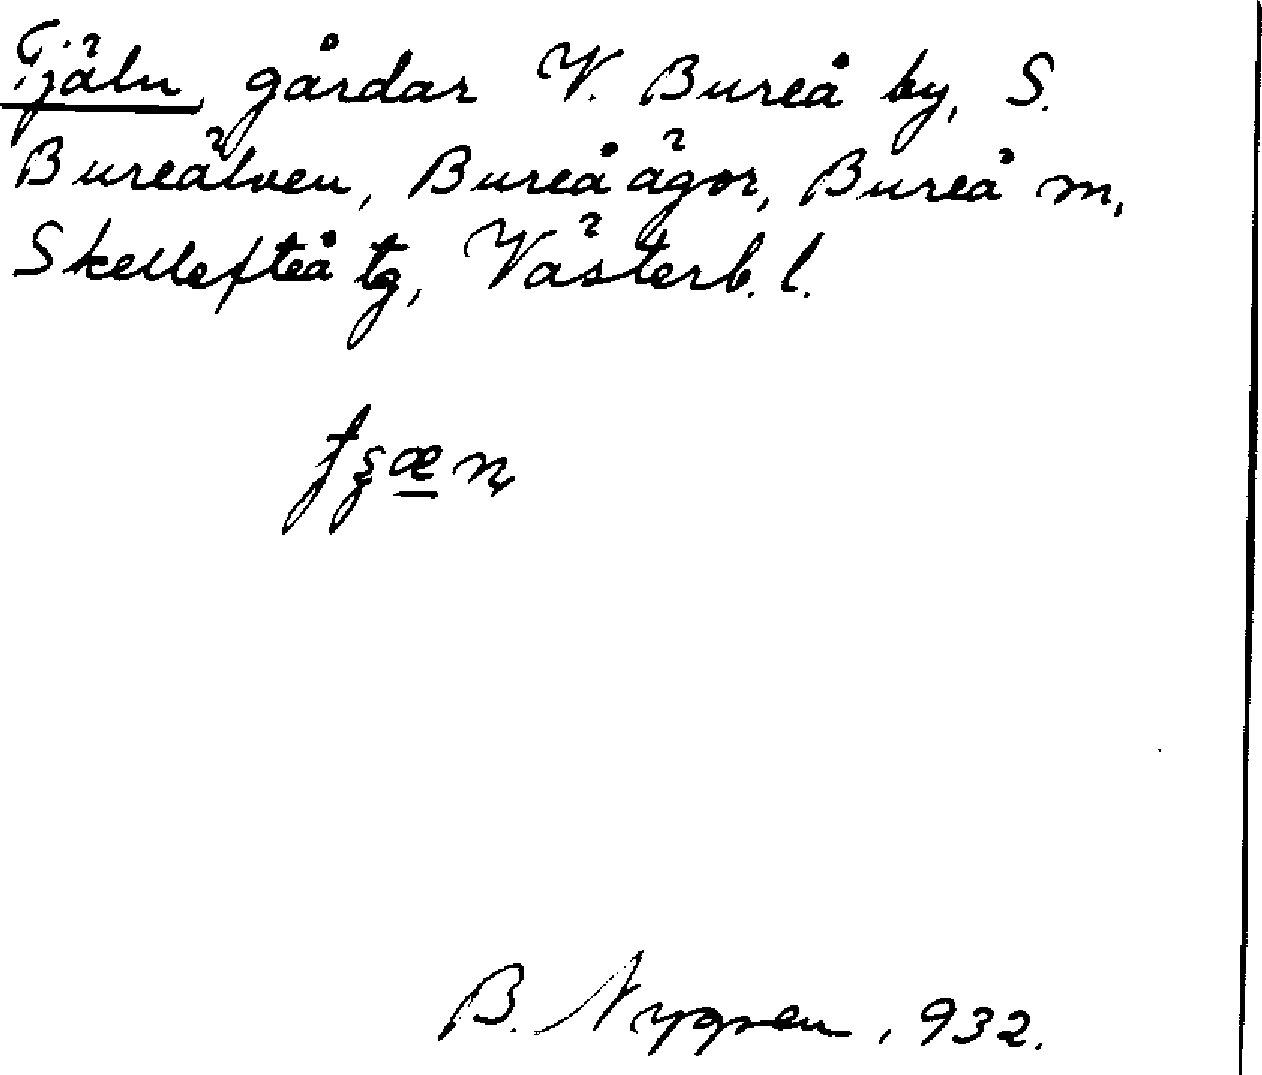 Tjäln, gårdar V. Bureå by, S.
Bureälven, Bureå ägor, Bureå m,
Skellefteå tg, Västerb. l.
B. Nygren, 932.